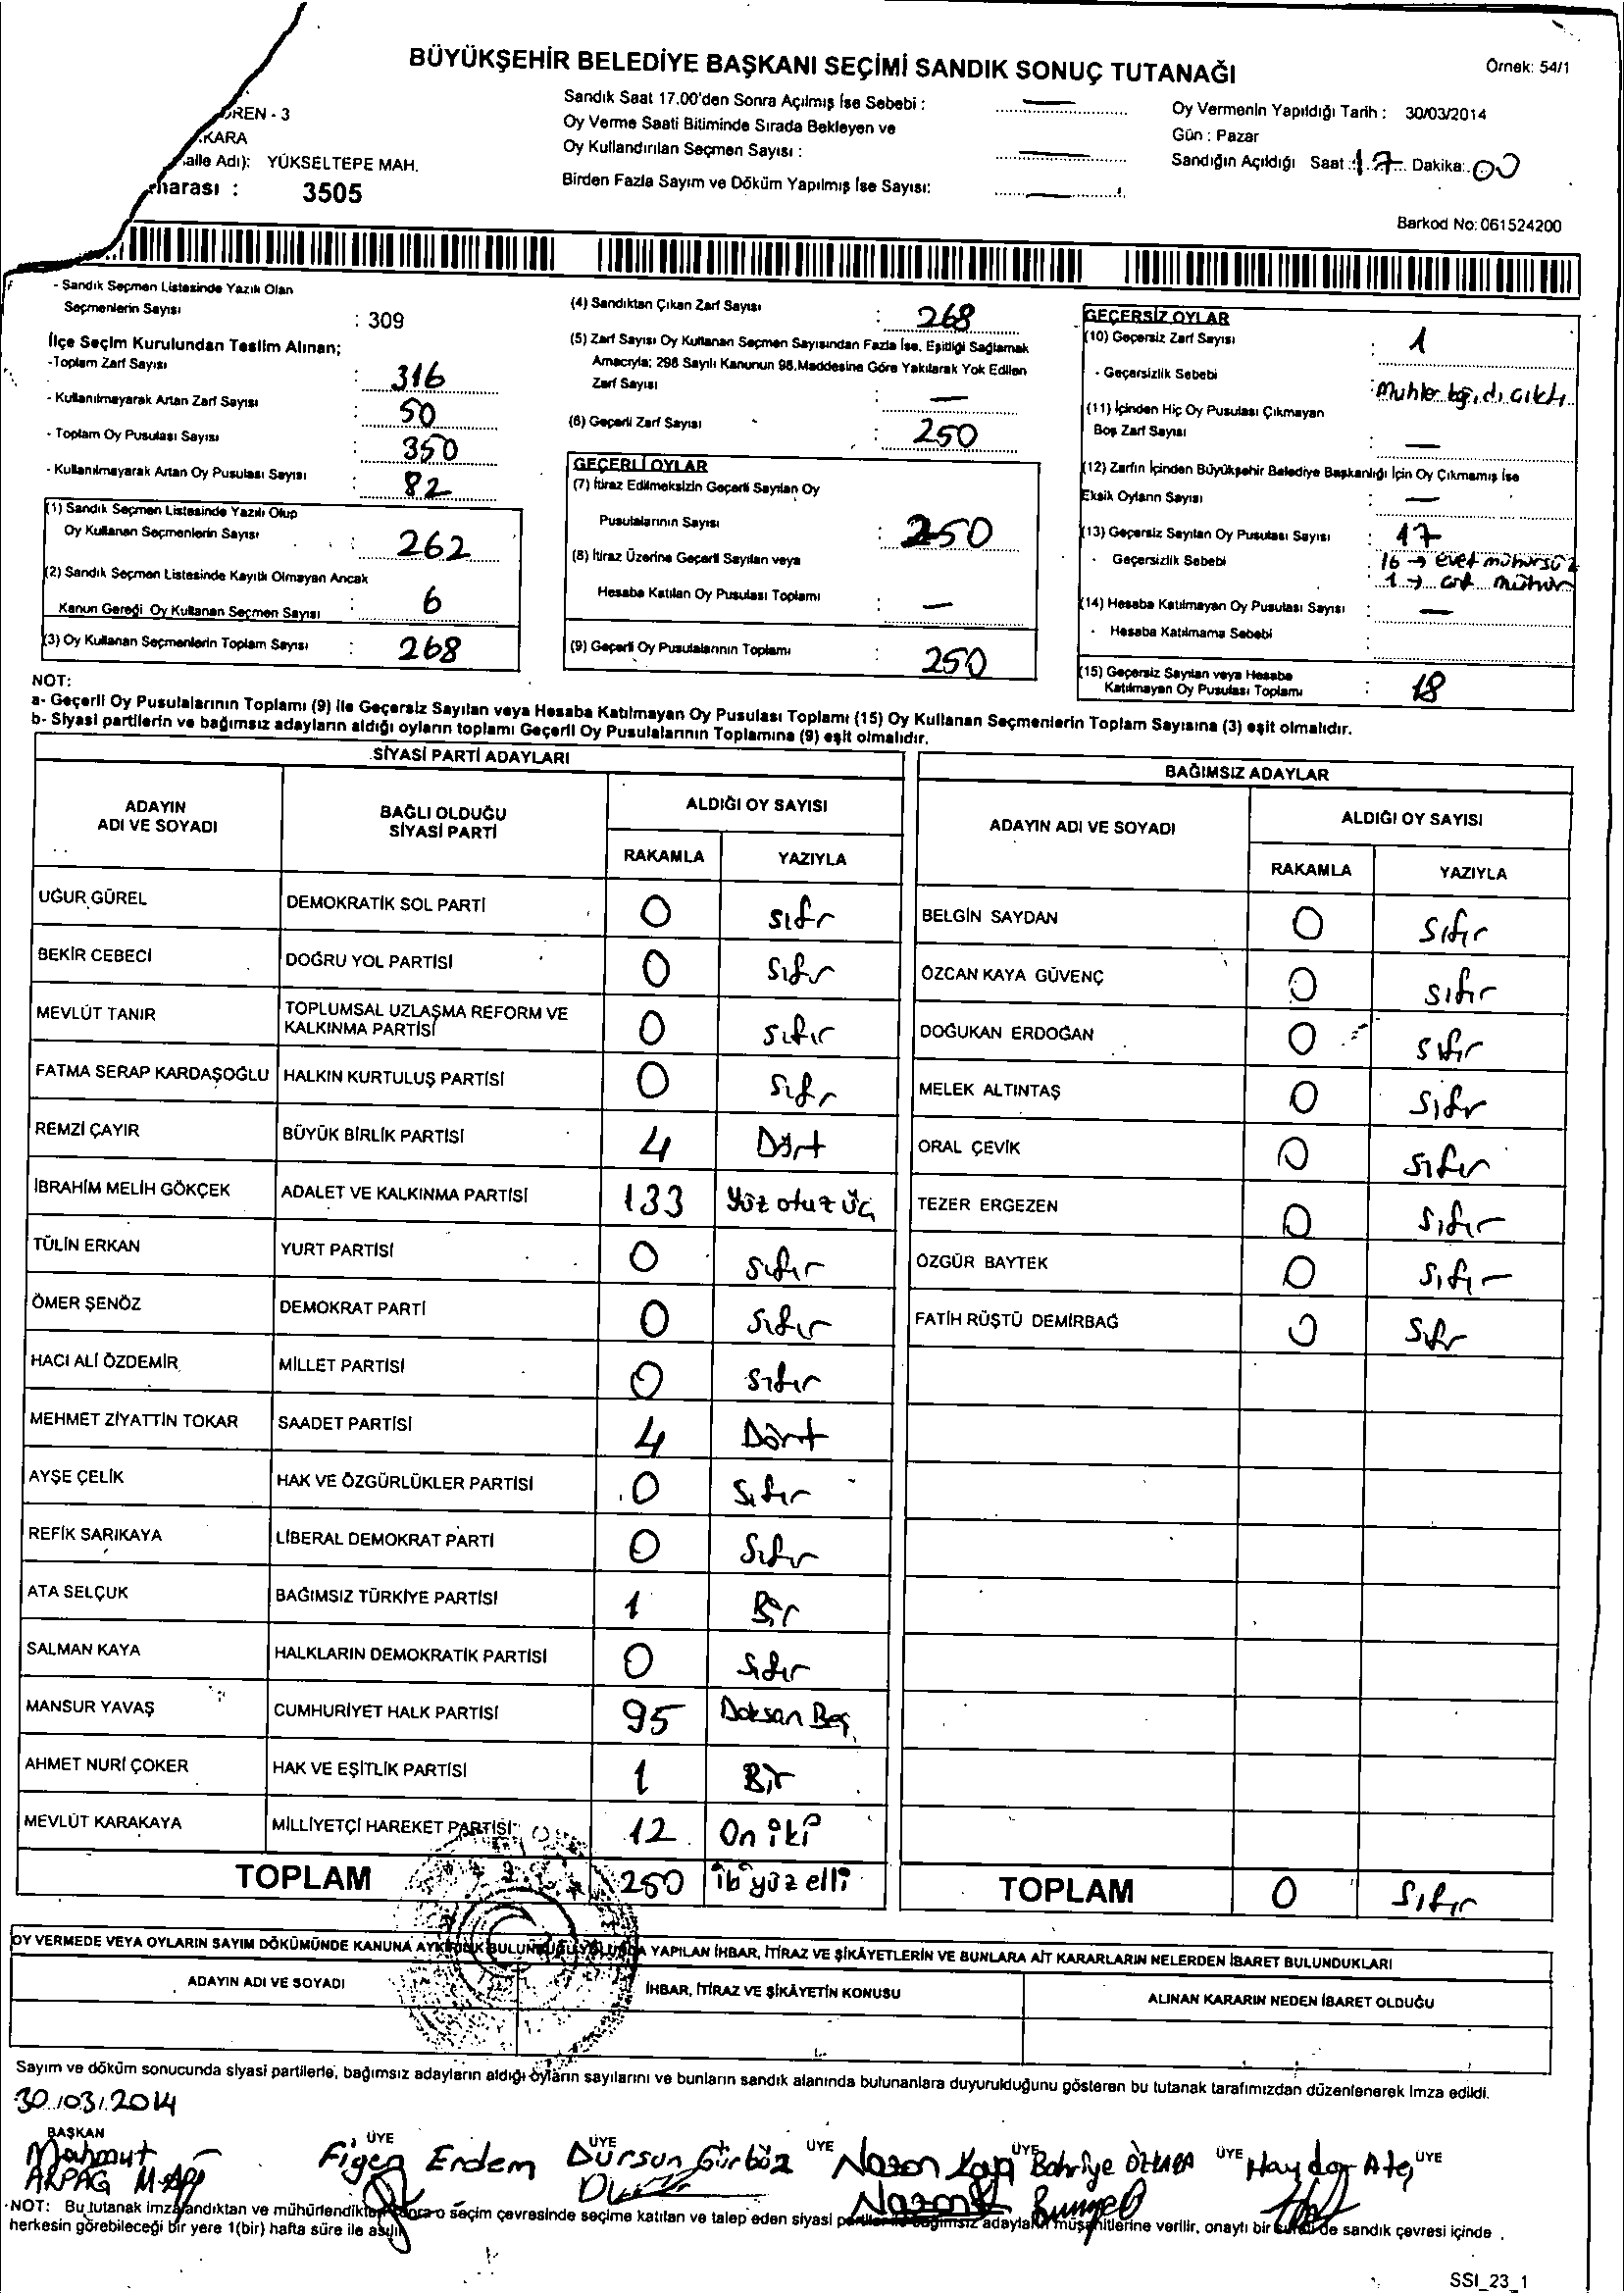 BÜYÜKŞEHİR BELEDİYE BAŞKANI SEÇİMİ SANDIK SONUÇ TUTANAĞI
Örnek: 54/1
ÖREN - 3
KARA
YÜKSELTEPE MAH.
3505
Sandık Saat 17.00'den Sonra Açılmış İse Sebebi : —
Oy Verme Saati Bitiminde Sırada Bekleyen ve
Oy Kullandırılan Seçmen Sayısı : —
Birden Fazla Sayım ve Döküm Yapılmış İse Sayısı: —
Oy Vermenin Yapıldığı Tarih : 30/03/2014
Gün : Pazar
Sandığın Açıldığı Saat : 17 Dakika: 00
Barkod No: 061524200
- Sandık Seçmen Listesinde Yazılı Olan
Seçmenlerin Sayısı : 309
İlçe Seçim Kurulundan Teslim Alınan;
-Toplam Zarf Sayısı : 316
- Kullanılmayarak Artan Zarf Sayısı : 50
- Toplam Oy Pusulası Sayısı : 350
- Kullanılmayarak Artan Oy Pusulası Sayısı : 82
(1) Sandık Seçmen Listesinde Yazılı Olup
Oy Kullanan Seçmenlerin Sayısı : 262
(2) Sandık Seçmen Listesinde Kayıtlı Olmayan Ancak
Kanun Gereği Oy Kullanan Seçmen Sayısı : 6
(3) Oy Kullanan Seçmenlerin Toplam Sayısı : 268
(4) Sandıktan Çıkan Zarf Sayısı : 268
(5) Zarf Sayısı Oy Kullanan Seçmen Sayısından Fazla İse, Eşitliği Sağlamak
Amacıyla; 298 Sayılı Kanunun 98.Maddesine Göre Yakılarak Yok Edilen
Zarf Sayısı : —
(6) Geçerli Zarf Sayısı : 250
GEÇERLİ OYLAR
(7) İtiraz Edilmeksizin Geçerli Sayılan Oy
Pusulalarının Sayısı : 250
(8) İtiraz Üzerine Geçerli Sayılan veya
Hesaba Katılan Oy Pusulası Toplamı : —
(9) Geçerli Oy Pusulalarının Toplamı : 250
GEÇERSİZ OYLAR
(10) Geçersiz Zarf Sayısı : 1
- Geçersizlik Sebebi :
(11) İçinden Hiç Oy Pusulası Çıkmayan
Boş Zarf Sayısı : —
(12) Zarfın İçinden Büyükşehir Belediye Başkanlığı İçin Oy Çıkmamış İse
Eksik Oyların Sayısı : —
(13) Geçersiz Sayılan Oy Pusulası Sayısı : 17
- Geçersizlik Sebebi : 16 → evet mühürsüz
1 → mühür
(14) Hesaba Katılmayan Oy Pusulası Sayısı : —
- Hesaba Katılmama Sebebi :
(15) Geçersiz Sayılan veya Hesaba
Katılmayan Oy Pusulası Toplamı : 18
NOT:
a- Geçerli Oy Pusulalarının Toplamı (9) ile Geçersiz Sayılan veya Hesaba Katılmayan Oy Pusulası Toplamı (15) Oy Kullanan Seçmenlerin Toplam Sayısına (3) eşit olmalıdır.
b- Siyasi partilerin ve bağımsız adayların aldığı oyların toplamı Geçerli Oy Pusulalarının Toplamına (9) eşit olmalıdır.
SİYASİ PARTİ ADAYLARI
ADAYIN ADI VE SOYADI BAĞLI OLDUĞU SİYASİ PARTİ ALDIĞI OY SAYISI
RAKAMLA YAZIYLA
UĞUR GÜREL DEMOKRATİK SOL PARTİ 0 sıfr
BEKİR CEBECİ DOĞRU YOL PARTİSİ 0 sıfr
MEVLÜT TANIR TOPLUMSAL UZLAŞMA REFORM VE KALKINMA PARTİSİ 0 sıfır
FATMA SERAP KARDAŞOĞLU HALKIN KURTULUŞ PARTİSİ 0 sıfr
REMZİ ÇAYIR BÜYÜK BİRLİK PARTİSİ 4 Dört
İBRAHİM MELİH GÖKÇEK ADALET VE KALKINMA PARTİSİ 133 Yüz otuz üç
TÜLİN ERKAN YURT PARTİSİ 0 sıfır
ÖMER ŞENÖZ DEMOKRAT PARTİ 0 sıfır
HACI ALİ ÖZDEMİR MİLLET PARTİSİ 0 sıfır
MEHMET ZİYATTİN TOKAR SAADET PARTİSİ 4 Dört
AYŞE ÇELİK HAK VE ÖZGÜRLÜKLER PARTİSİ 0 sıfır
REFİK SARIKAYA LİBERAL DEMOKRAT PARTİ 0 sıfır
ATA SELÇUK BAĞIMSIZ TÜRKİYE PARTİSİ 1 Bir
SALMAN KAYA HALKLARIN DEMOKRATİK PARTİSİ 0 sıfır
MANSUR YAVAŞ CUMHURİYET HALK PARTİSİ 95 Doksan Beş
AHMET NURİ ÇOKER HAK VE EŞİTLİK PARTİSİ 1 Bir
MEVLÜT KARAKAYA MİLLİYETÇİ HAREKET PARTİSİ 12 On iki
TOPLAM 250 iki yüz elli
BAĞIMSIZ ADAYLAR
ADAYIN ADI VE SOYADI ALDIĞI OY SAYISI
RAKAMLA YAZIYLA
BELGİN SAYDAN 0 sıfır
ÖZCAN KAYA GÜVENÇ 0 sıfır
DOĞUKAN ERDOĞAN 0 sıfır
MELEK ALTINTAŞ 0 sıfr
ORAL ÇEVİK 0 sıfır
TEZER ERGEZEN 0 sıfır
ÖZGÜR BAYTEK 0 sıfır
FATİH RÜŞTÜ DEMİRBAĞ 0 sıfr
TOPLAM 0 sıfır
OY VERMEDE VEYA OYLARIN SAYIM DÖKÜMÜNDE KANUNA AYKIRILIK BULUNDUĞU YOLUNDA YAPILAN İHBAR, İTİRAZ VE ŞİKÂYETLERİN VE BUNLARA AİT KARARLARIN NELERDEN İBARET BULUNDUKLARI
ADAYIN ADI VE SOYADI İHBAR, İTİRAZ VE ŞİKÂYETİN KONUSU ALINAN KARARIN NEDEN İBARET OLDUĞU
Sayım ve döküm sonucunda siyasi partilerle, bağımsız adayların aldığı oyların sayılarını ve bunların sandık alanında bulunanlara duyurulduğunu gösteren bu tutanak tarafımızdan düzenlenerek imza edildi.
30.03.2014
BAŞKAN ÜYE ÜYE ÜYE ÜYE ÜYE ÜYE
Mahmut ARPAG Figen Erdem Dursun Gürbüz Nazan Kaya Bahriye Haydar Ateş
NOT: Bu tutanak imzalandıktan ve mühürlendikten sonra o seçim çevresinde seçime katılan ve talep eden siyasi partiler ile bağımsız adayların müşahitlerine verilir, onaylı bir sureti de sandık çevresi içinde
herkesin görebileceği bir yere 1(bir) hafta süre ile asılır.
SSI_23_1